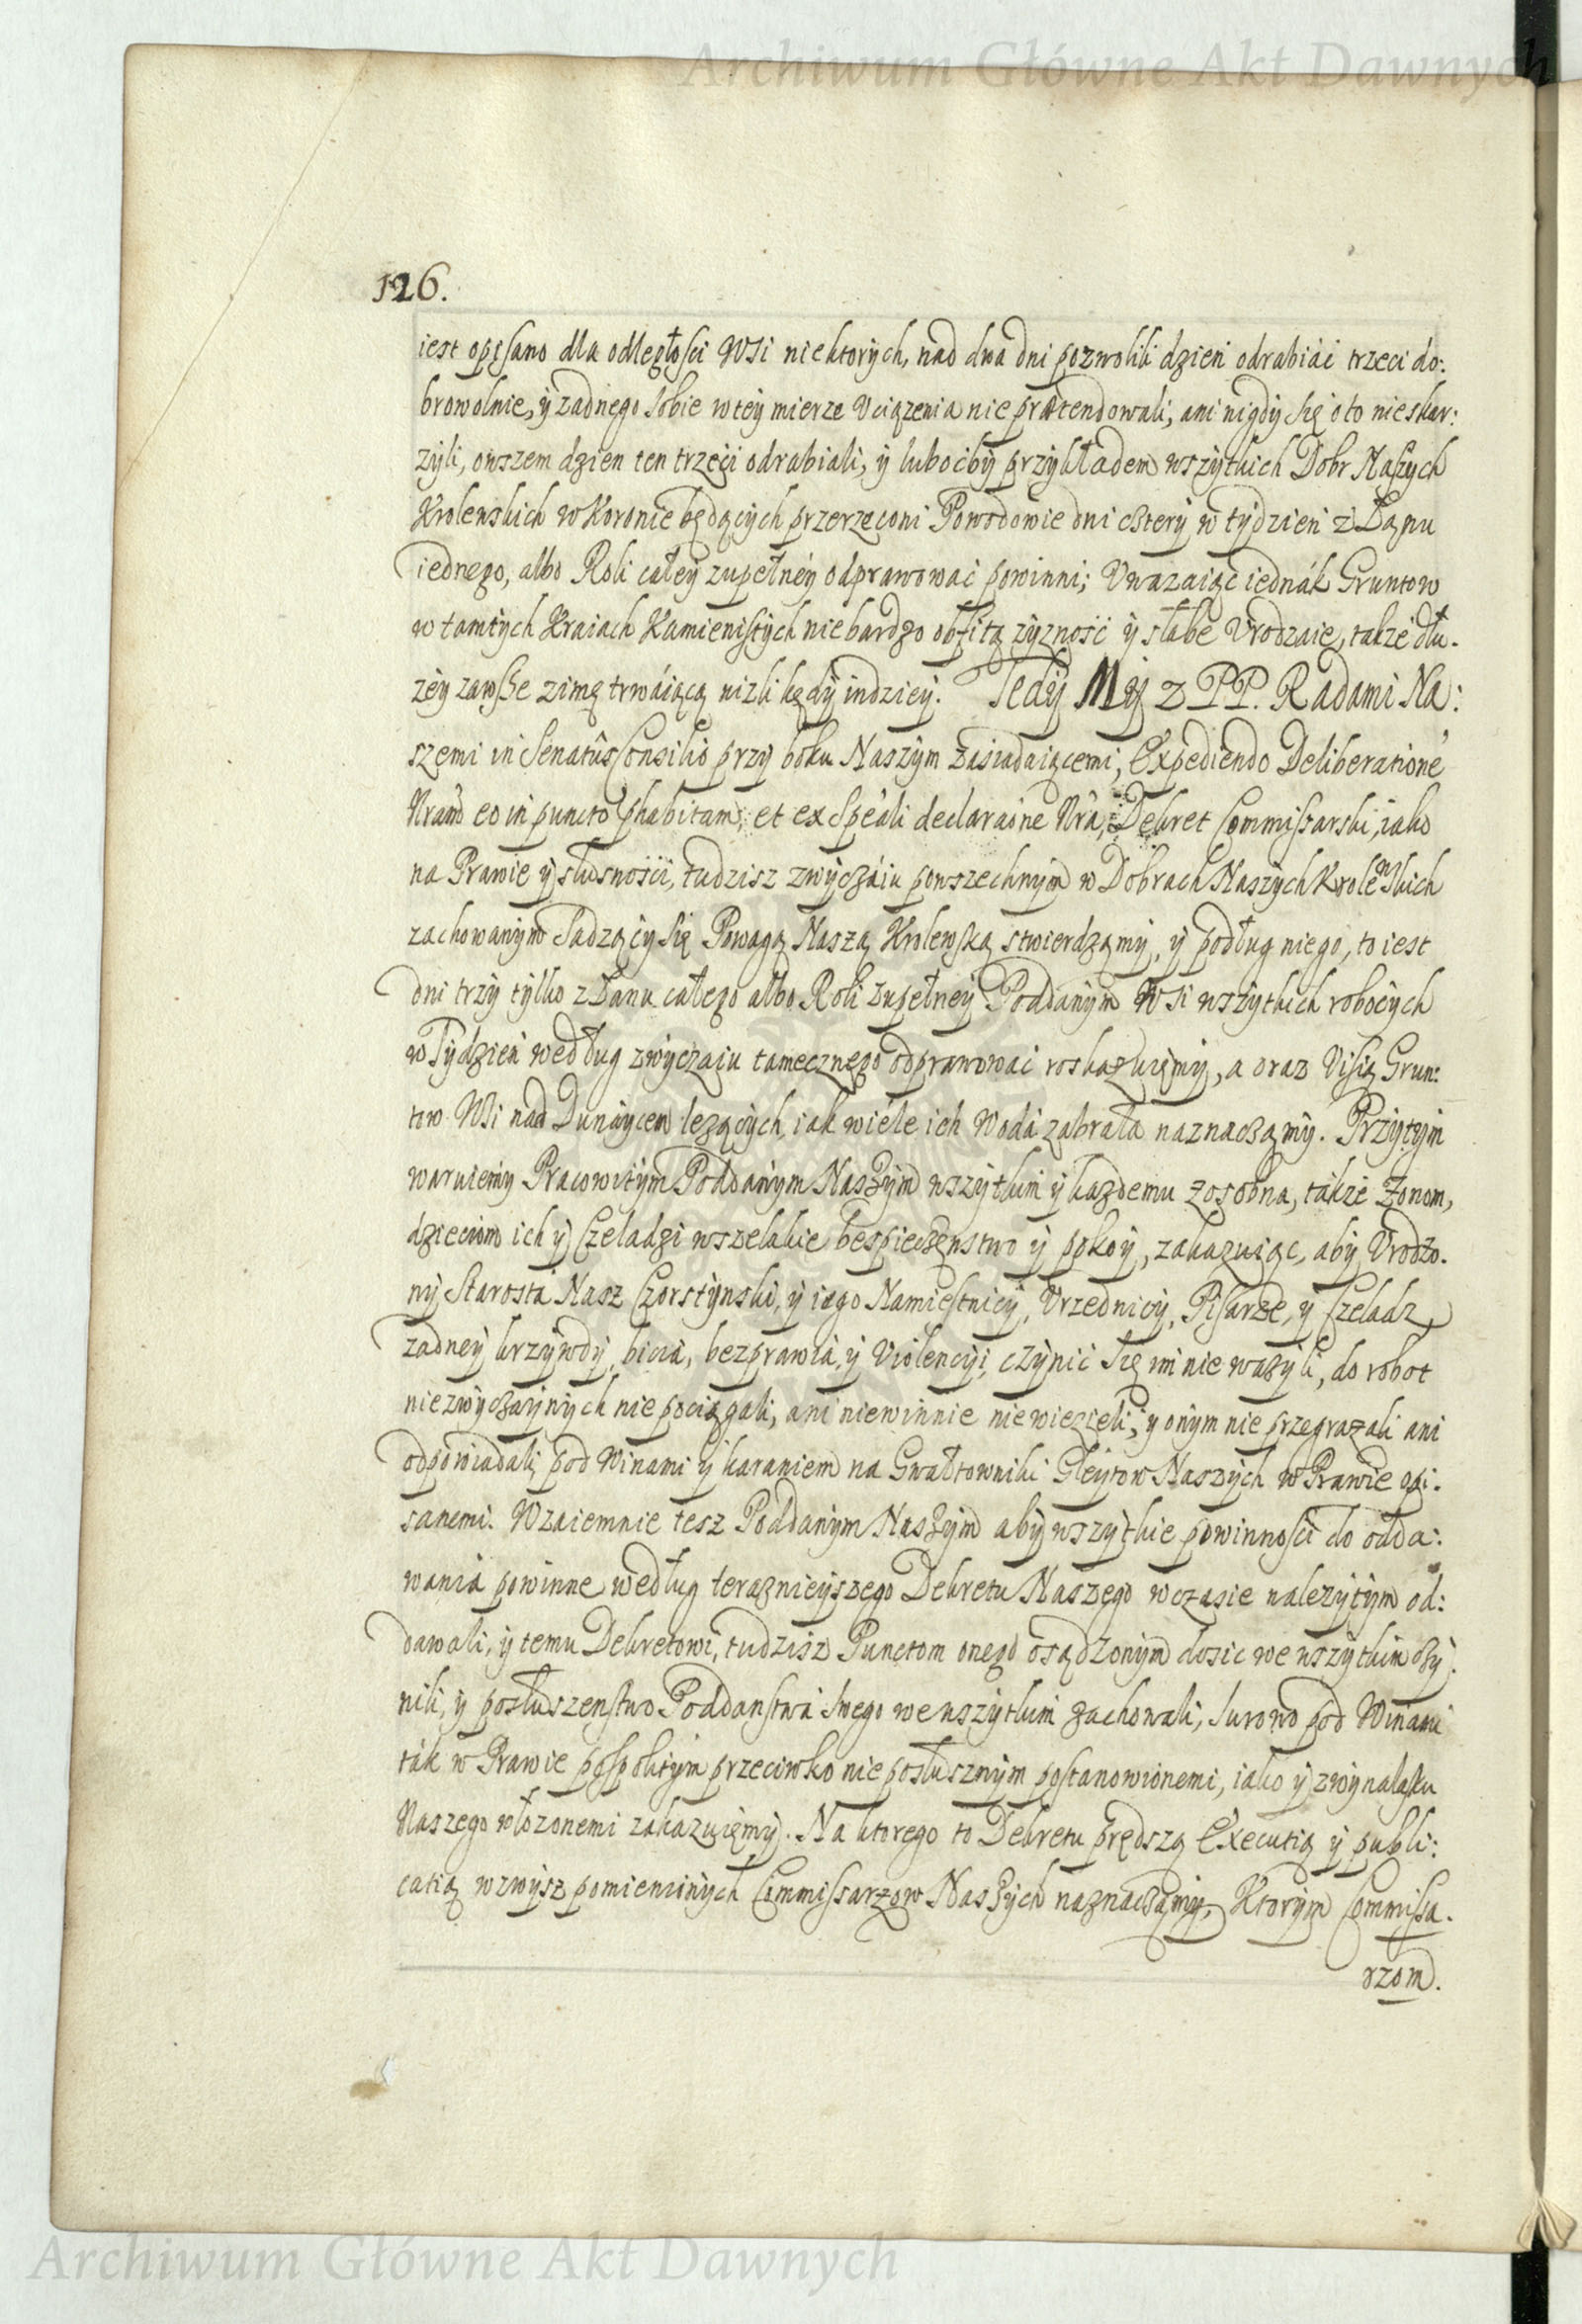 Archiwum Główne Akt Dawnych
126.
iest opisano dla odległości Wsi niektorych, nad dwa dni pozwolili dzień odrabiáć trzeci do:
browolnie, ÿ zadnego sobie w teÿ mierze Vciązenia nie prætendowali, ani nigdÿ się o to nie skar:
zÿli, owszem dzien ten trzeći odrabiali, ÿ lubo ćibÿ przÿkładem wszÿtkich Dobr Naszÿch
Krolewskich w Koronie będącÿch przerzeczoni Powodowie dni czterÿ w tÿdzień z Łanu
iednego, albo Roli całeÿ zupełnéÿ odprawować powinni; Vwazaiąc iednák Gruntow
w tamtÿch Kraiach Kamienistÿch nie bardzo obfitą zÿzność ÿ słabe Vrodzaie, takze dłu.
zéÿ zawsze zimę trwáiącą nizli kędÿ indzieÿ. Tedÿ Mÿ z PP. Radami Na:
szemi in Senatûs Consilio przÿ boku Naszÿm zasiadaiącemi, Expediendo Deliberationẽ
Nram̃ eo in puncto p̃habitam, et ex Sp̃eali declaraõne Nrã, Dekret Commissarski, iako
na Prawie ÿ słusności, tudzisz zwÿczáiu powszechnÿm w Dobrach Naszÿch Krolewskich
zachowanÿm Sadzącÿ się Powagą Naszą Krolewską stwierdzamÿ, ÿ podług niego, to iest
dni trzÿ tÿlko z Łanu całego albo Roli zupełneÿ Poddanÿm Wsi wszÿtkich robocÿch
w Tÿdzień według zwÿczaiu tamecznego odprawować roskazuiemÿ, a oraz Visią Grun:
tow Wsi nad Dunáÿcem lezącÿch, iak wiéle ich Wodá zabrała naznaczamÿ. Przÿtÿm
waruiemÿ Pracowitÿm Poddanÿm Naszÿm wszÿtkim ÿ kazdemu zosobna, takze Zonom,
dzieciom ich ÿ Czeladzi wszelakie bespieczenstwo ÿ pokoÿ, zakazuiąc, abÿ Vrodzo.
nÿ Starosta Nasz Czorstÿnski, ÿ iego Namiestnicÿ, Vrzednicÿ, Pisarze, ÿ Czeladz
zadneÿ krzÿwdÿ, bicia, bezprawia, ÿ Violencÿi, czÿnić się im nie wazÿli, do robot
niezwÿczaÿnÿch nie pociągali, ani niewinnie nie wiezieli, ÿ onÿm nie przegrazali ani
odpowiadali pod Winami ÿ karaniem na Gwałtowniki Gleÿtow Naszÿch w Prawie opi:
sanemi. Wzaiemnie tesz Poddanÿm Naszÿm abÿ wszÿtkie powinności do odda:
wania powinne według teraznieÿszego Dekretu Naszego w czasie nalezÿtÿm od:
dawali, ÿ temu Dekretowi, tudzisz Punctom onego osądzonÿm dosic we wszÿtkim czÿ:
nili, ÿ posłuszenstwo Poddanstwa swego we wszÿtkim zachowali, surowo pod Winami
ták w Prawie pospolitÿm przeciwko nieposłusznÿm postanowionemi, iako ÿ z wÿnalasku
Naszego włozonemi zakazuięmÿ. Na ktorego to Dekretu prędszą Executią ÿ publi:
catią wzwÿsz pomienionÿch Commissarzow Naszÿch naznaczamÿ, Ktorÿm Commissa.
rzom.
Archiwum Główne Akt Dawnych